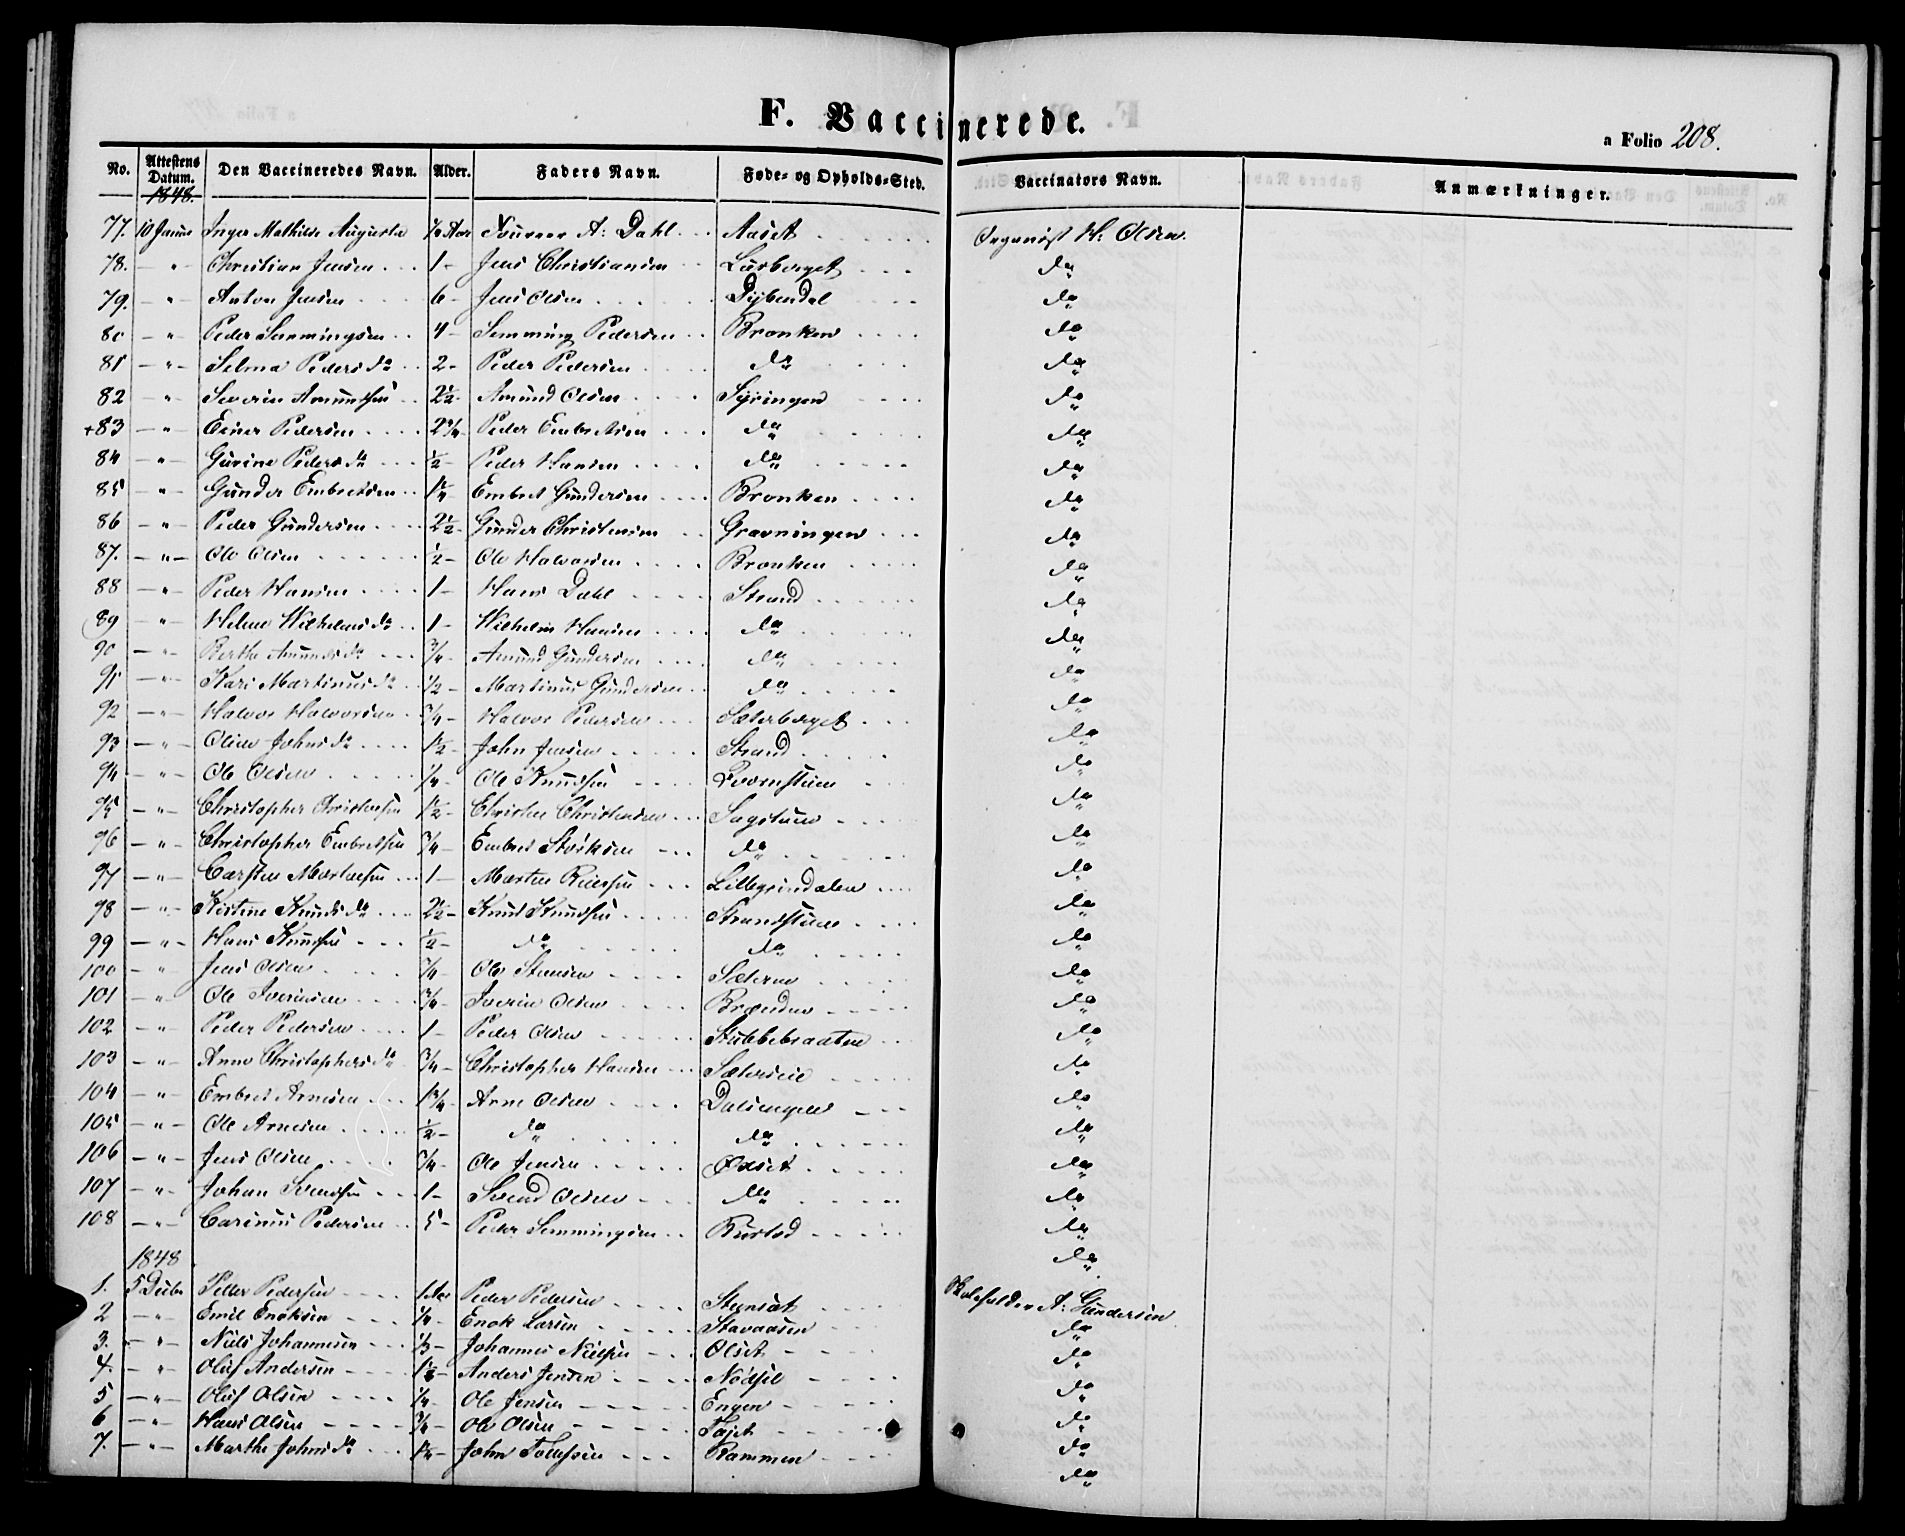 F. Vaccinerede.
a Folio 208.
No. Attestens Datum. Den Vaccineredes Navn. Alder. Faders Navn. Føde- og Opholds-Sted. Vaccinators Navn. Anmærkninger.
1848.
77. 10 Inger Mathilde Augusta A: Dahl Aaset Organist H: Olsen.
78. — " Christian Jensen 1 - Jens Christiansen do
79. — " Anton Jensen 6 - Jens Olsen Dybendal do
80 — " Peder Semmingsen 4 - Semming Pedersen Bronken do
81 — " Selma Pedersdr 2 - Peder Pedersen do do
82 — " Severin Amundsen 2½ - Amund Olsen Syringen do
+83 — " Einer Pedersen 2¾ - Peder Embretsen do do
84 — " Gurine Pedersdr ½ - Peder Hansen do do
85 — " Gunder Embretsen 1¼ - Embret Gundersen Bronken do
86 — " Peder Gundersen 2½ - Gunder Christensen Gravningen do
87. — " Ole Olsen ½ - Ole Halvorsen Bronken do
88 — " Peder Hansen 1 - Hans Dahl Strand do
89 — " Helene Wilhelmsdr 1 - Wilhelm Hansen do do
90 — " Berthe Amundsdr ¾ - Amund Gundersen do do
91 — " Kari Martinusdr ½ - Martinus Gundersen do do
92 — " Halvor Halvorsen ¾ - Halvor Pedersen Sæterberget do
93 — " Oline Johnsdr 1½ - John Jensen Strand do
94 — " Ole Olsen ¼ - Ole Knudsen do
95 — " Christopher Christensen 1½ - Christen Christensen Sagstuen do
96 — " Christopher Embretsen ¾ - Embret do do
97 — " Carsten Martensen 1 - Marten Lillegrindalen do
98 — " Kistine Knudsdr 2½ - Knud Knudsen Strandstuen do
99 — " Hans Knudsen ½ - do do do
100 — " Jens Olsen ¾ - Ole Stensen Sæteren do
101 — " Ole Iversen ¾ - Olsen Brænden do
102 — " Peder Pedersen 1 - Peder Olsen Stubbebraaten do
103 — " Anne Christophersdr ¾ - Christopher Hansen do
104 — " Embret Arnesen 1¾ - Arne Olsen Dalsengen do
105 — " Ole Arnesen ½ - do do do
106 — " Jens Olsen ¾ - Ole Jensen Øxset do
107 — " Johan Svendsen 1 - Svend Olsen do do
108 — " Carinus Pedersen 5 - Peder Semmingsen do
1848 do
1. 5 Petter Pedersen 1 Aar Peder Pedersen Steenset Skoleholder A: Gundersen
2 — " Emil Enoksen ¼ - Enok Larsen Stavaasen do
3. — " Niels Johannesen ⅓ - Johannes Nielsen Olset do
4. — " Oluf Andersen 1½ - Anders Jensen Nødsel do
5 — " Oluf Olsen ¼ - Ole Jensen Engen do
6 — " Hans Olsen ¾ - Ole Olsen do
7. — " Marthe Johnsdr 1¼ - John Tollefsen Rammen do